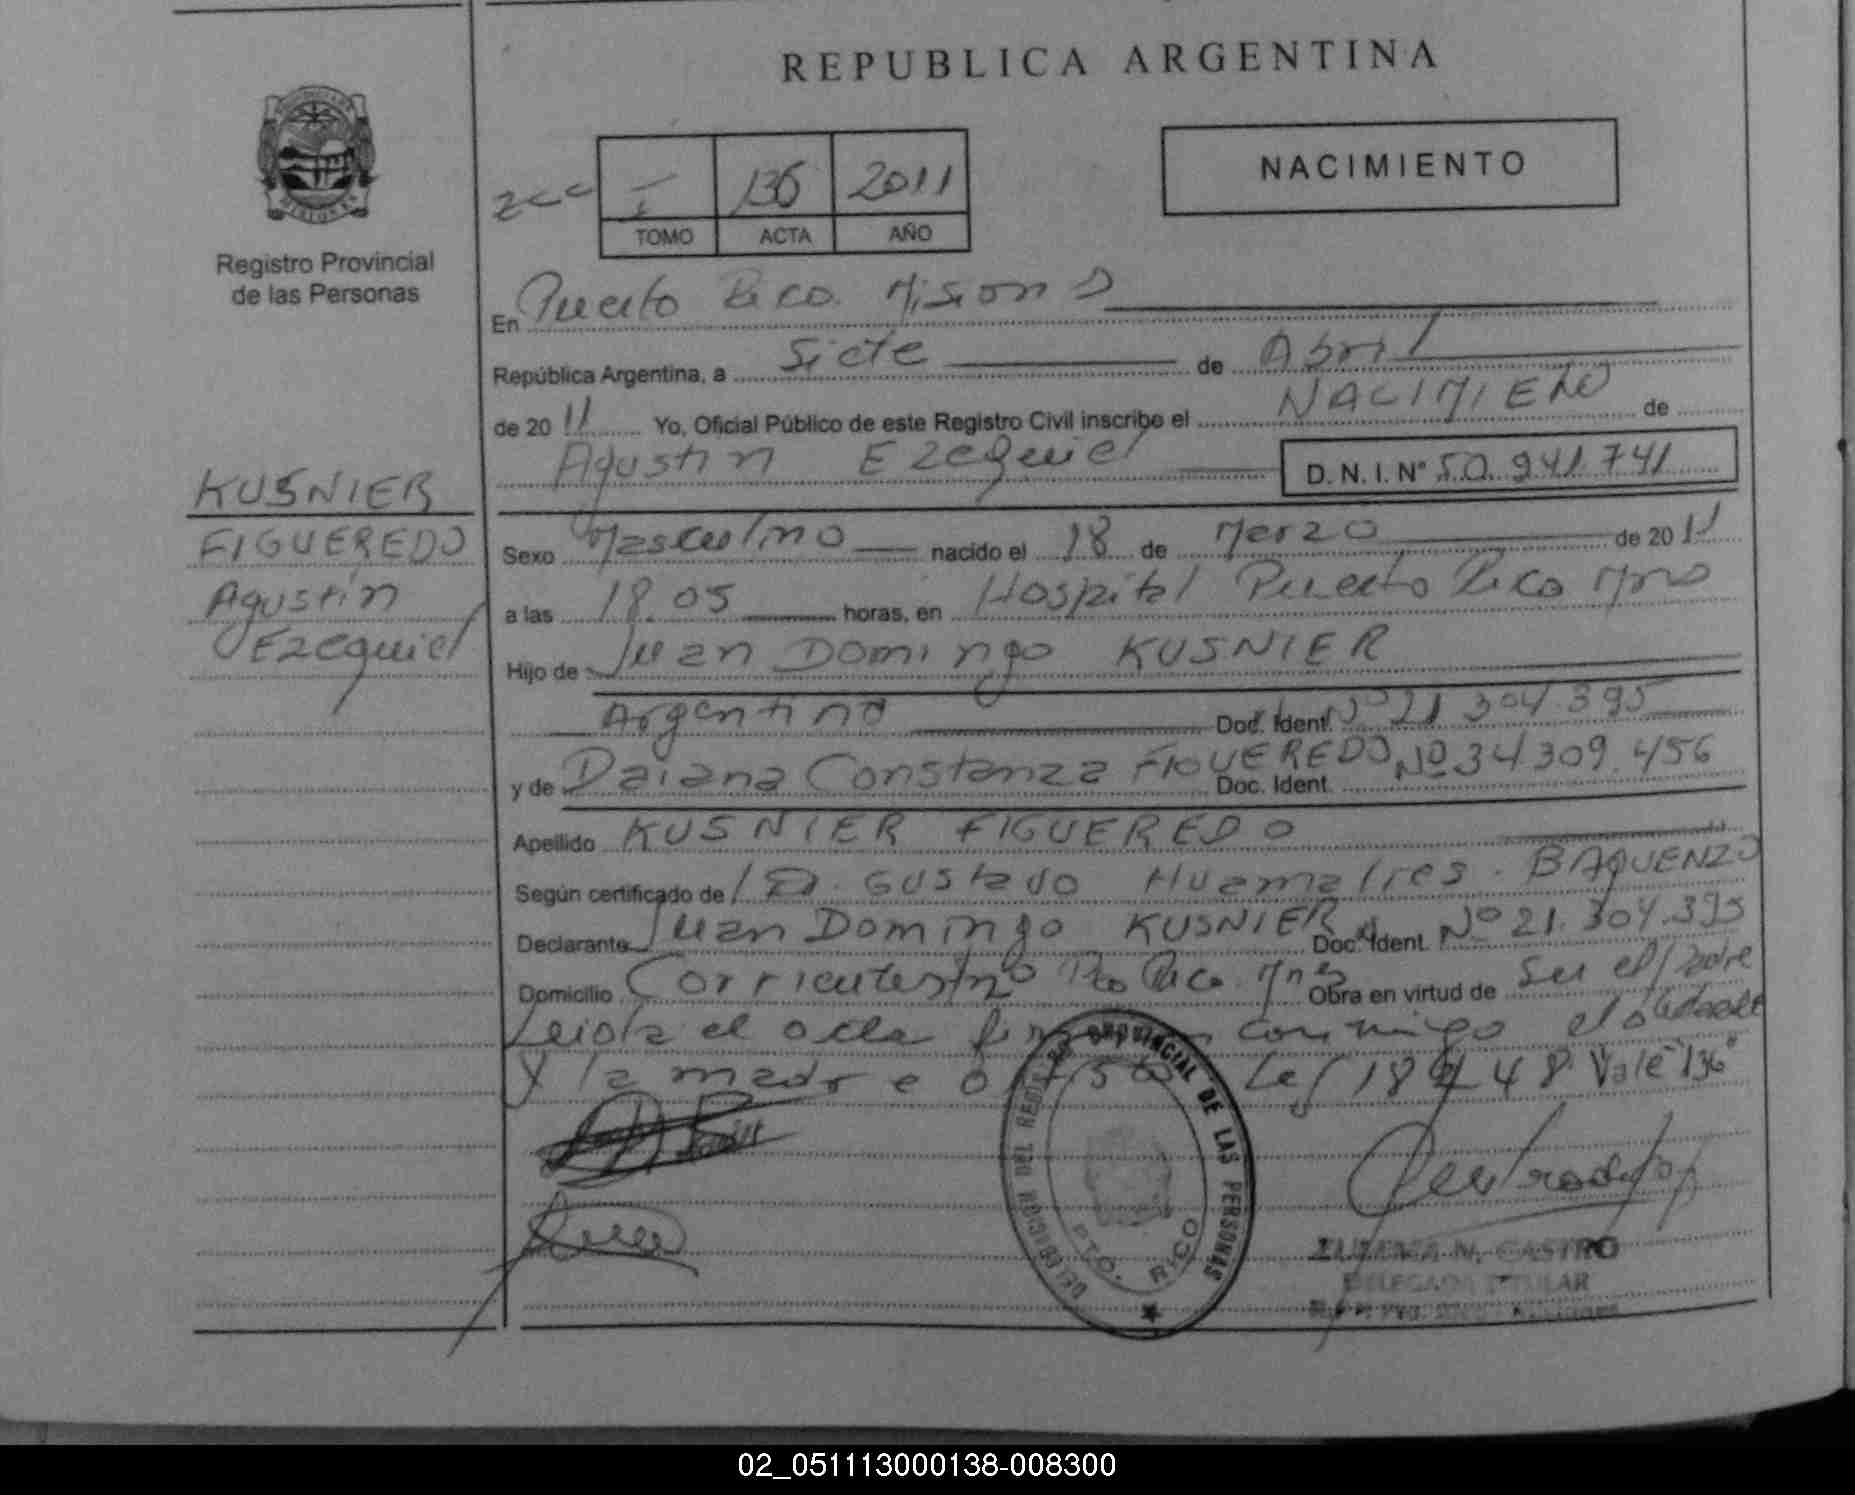 REPUBLICA ARGENTINA
NACIMIENTO
I 136 2011
TOMO ACTA AÑO
Registro Provincial
de las Personas
En Puerto Rico. Misiones
República Argentina, a Siete de Abril
de 2011 Yo, Oficial Público de este Registro Civil inscribo el NACIMIENTO de
Agustin Ezequiel D. N. I. N° 50.941.741
KUSNIER
FIGUEREDO
Agustin
Ezequiel
Sexo Masculino nacido el 18 de Marzo de 2011
a las 18.05 horas, en Hospital Puerto Rico Mnes
Hijo de Juan Domingo KUSNIER
Argentino Doc. Ident. Nº 21 304.395
y de Daiana Constanza FIGUEREDO Doc. Ident. Nº 34 309.456
Apellido KUSNIER FIGUEREDO
Según certificado de Gustavo BAQUENZO
Declarante Juan Domingo KUSNIER Doc. Ident. Nº 21.304.395
Domicilio Corrientes Pto Rico. Mnes Obra en virtud de Ser el Padre
Leida el acta conmigo el
y la madre Ley 18248. Vale "136"
DELEGACION DEL REGISTRO PROVINCIAL DE LAS PERSONAS
PTO. RICO
N. CASTRO
DELEGADA TITULAR
02_051113000138-008300